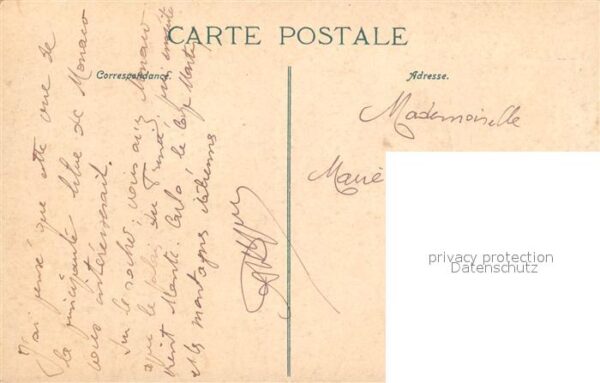 CARTE POSTALE
Correspondance.
Adresse.
J'ai pensé que cette vue de
la principauté libre de Monaco
vous intéresserait.
Sur le rocher, vous avez Monaco
avec le palais du Prince, puis ensuite
vient Monte-Carlo, le Cap Martin
et les montagnes italiennes
Mademoiselle
Marie
privacy protection
Datenschutz